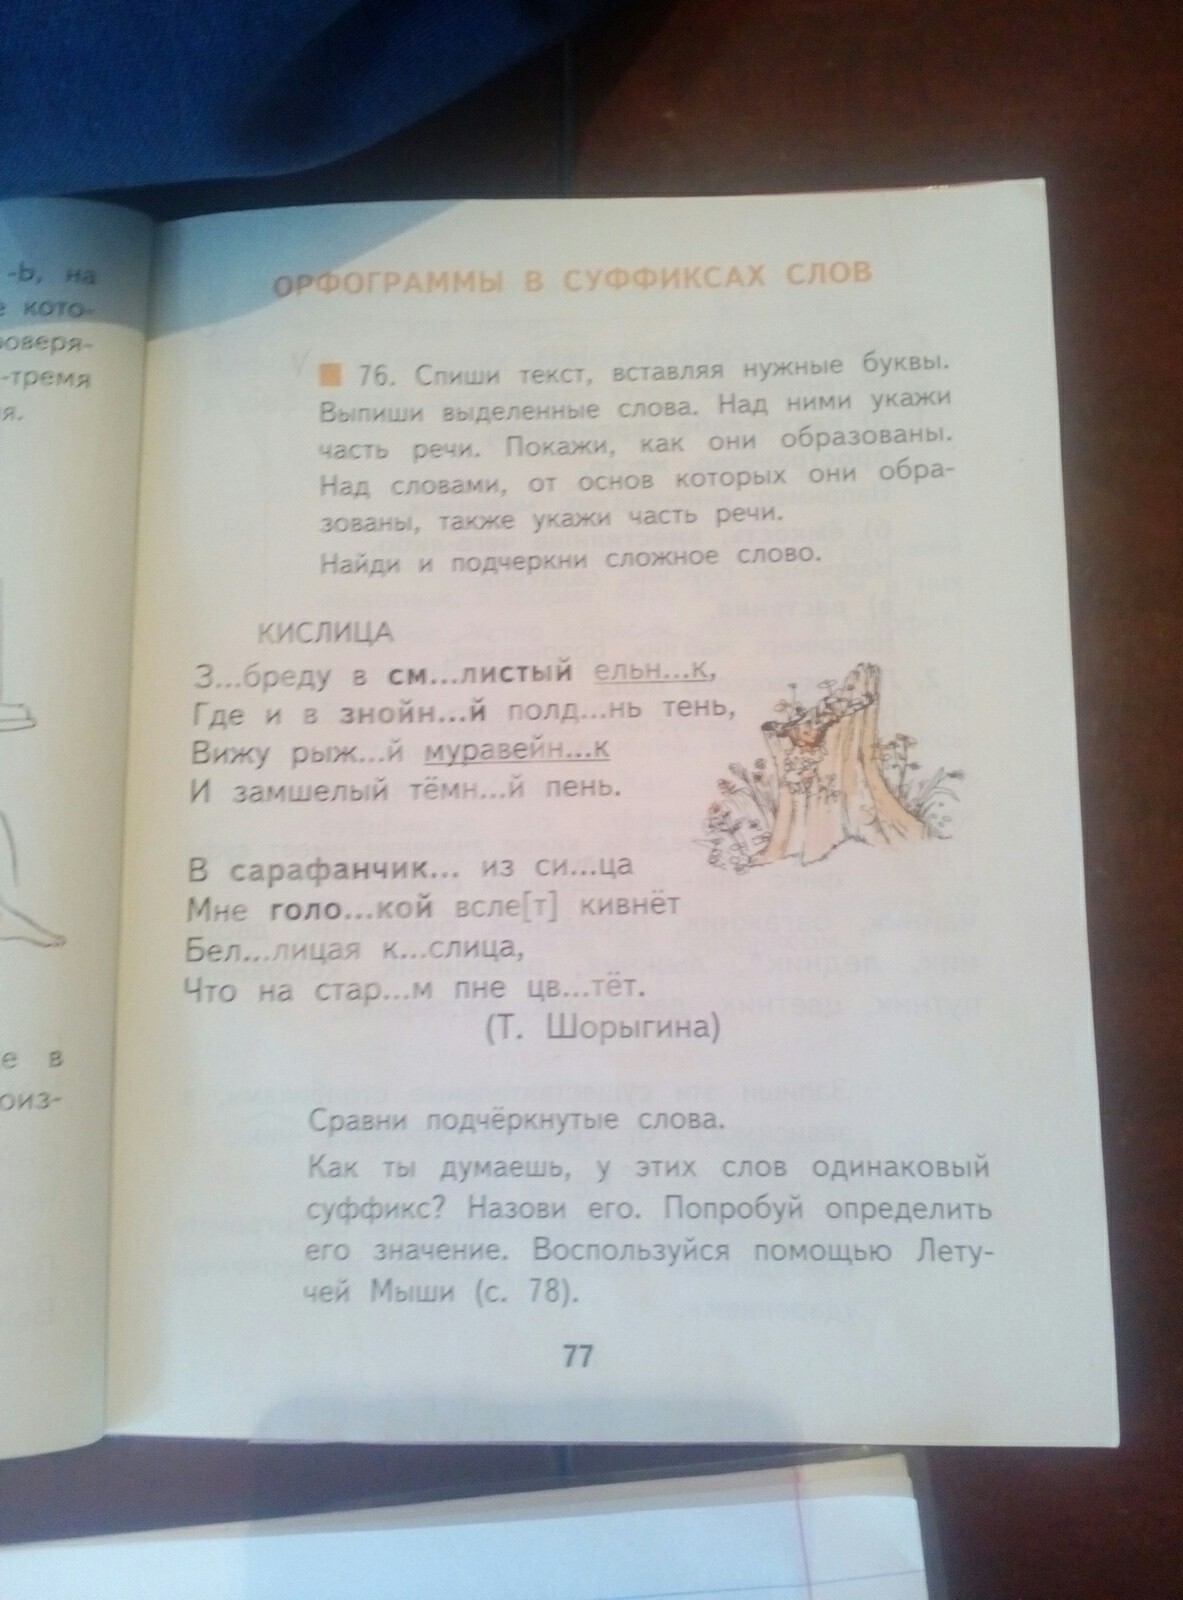 -Ь, на
е кото-
оверя-
-тремя
я.
е в
оиз-
ОРФОГРАММЫ В СУФФИКСАХ СЛОВ
76. Спиши текст, вставляя нужные буквы.
Выпиши выделенные слова. Над ними укажи
часть речи. Покажи, как они образованы.
Над словами, от основ которых они обра-
зованы, также укажи часть речи.
Найди и подчеркни сложное слово.
КИСЛИЦА
З...бреду в см...листый ельн...к,
Где и в знойн...й полд...нь тень,
Вижу рыж...й муравейн...к
И замшелый тёмн...й пень.
В сарафанчик... из си...ца
Мне голо...кой всле[т] кивнёт
Бел...лицая к...слица,
Что на стар...м пне цв...тёт.
(Т. Шорыгина)
Сравни подчёркнутые слова.
Как ты думаешь, у этих слов одинаковый
суффикс? Назови его. Попробуй определить
его значение. Воспользуйся помощью Лету-
чей Мыши (с. 78).
77